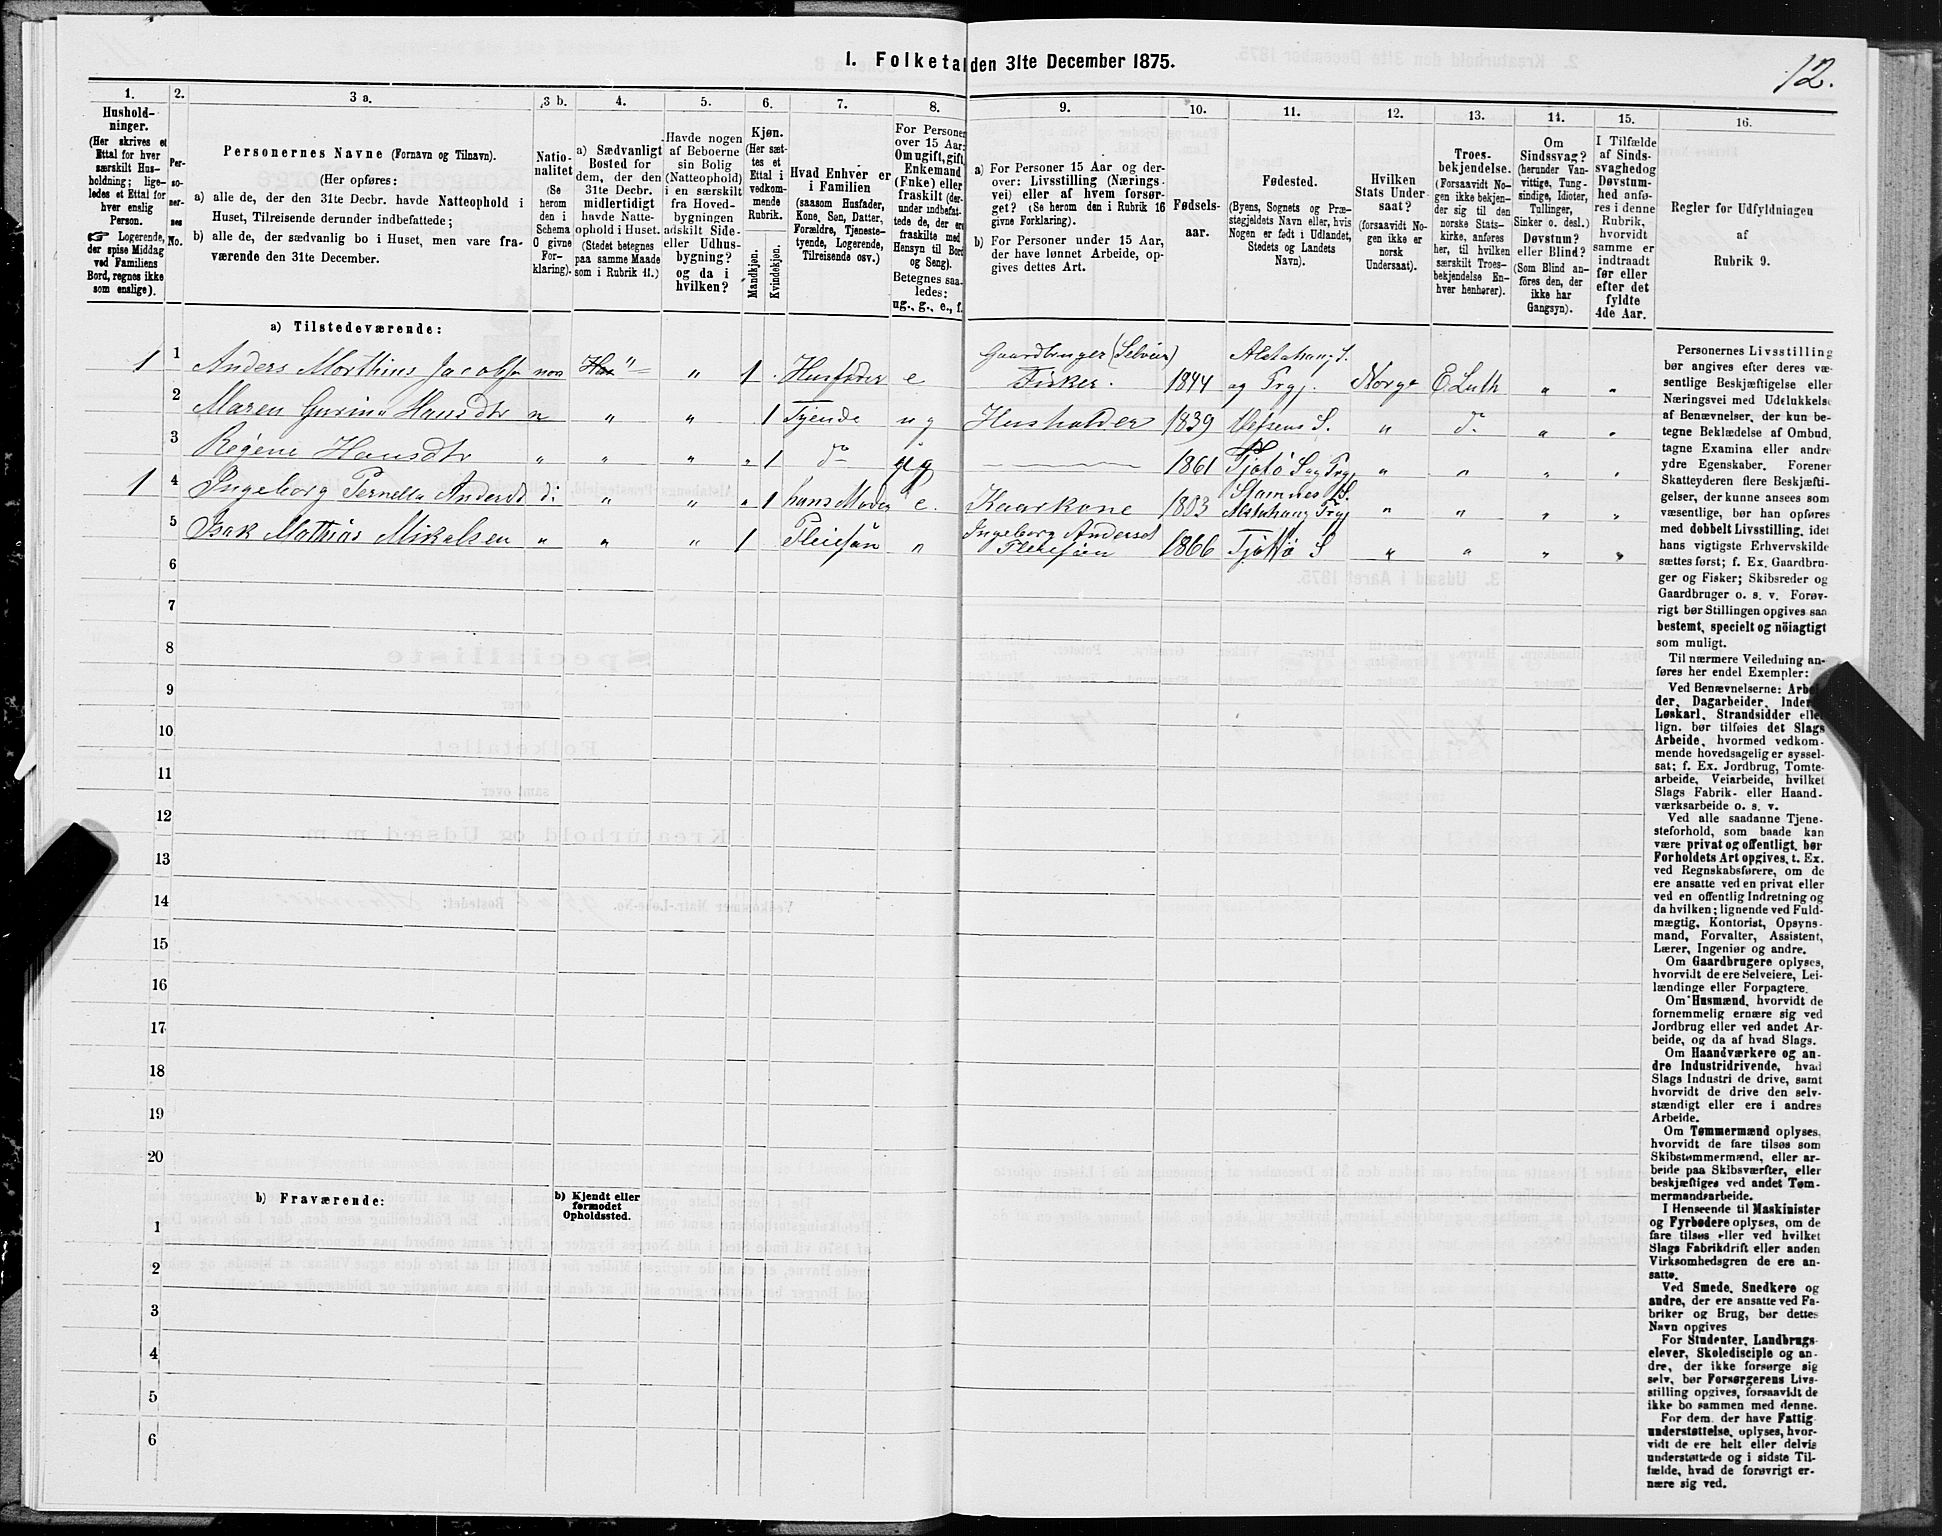 I. Folketal den 31te December 1875.
12.
1. 2. 3 a. 3 b. 4. 5. 6. 7. 8. 9. 10. 11. 12. 13. 14. 15. 16.
Hushold-
ninger.
(Her skrives et
Ettal for hver
særskilt Hus-
holdning; lige-
ledes et Ettal for
hver enslig
Person.
☞ Logerende,
der spise Middag
ved Familiens
Bord, regnes ikke
som enslige).
Per-
so-
ner-
nes
No.
Personernes Navne (Fornavn og Tilnavn).
(Her opføres:
a) alle de, der den 31te Decbr. havde Natteophold i
Huset, Tilreisende derunder indbefattede;
b) alle de, der sædvanlig bo i Huset, men vare fra-
værende den 31te December.
Natio-
nalitet
(Se
herom
den i
Schema
O givne
For-
klaring).
a) Sædvanligt
Bosted for
dem, der den
31te Decbr.
midlertidigt
havde Natte-
ophold i Huset.
(Stedet betegnes
paa samme Maade
som i Rubrik 11.)
Havde nogen
af Beboerne
sin Bolig
(Natteophold)
i en særskilt
fra Hoved-
bygningen
adskilt Side-
eller Udhus-
bygning?
og da i
hvilken?
Kjøn.
(Her sæt-
tes et
Ettal i
vedkom-
mende
Rubrik.
Mandkjøn.
Kvindekjøn.
Hvad Enhver er
i Familien
(saasom Husfader,
Kone, Søn, Datter,
Forældre, Tjeneste-
tyende, Logerende,
Tilreisende osv.)
For Personer
over 15 Aar:
Om ugift, gift,
Enkemand
(Enke) eller
fraskilt (der-
under indbefat-
tede de, der ere
fraskilte med
Hensyn til Bord
og Seng).
Betegnes saa-
ledes:
ug., g., e., f.
a) For Personer 15 Aar og der-
over: Livsstilling (Nærings-
vei) eller af hvem forsør-
get? (Se herom den i Rubrik 16
givne Forklaring).
b) For Personer under 15 Aar,
der have lønnet Arbeide, op-
gives dettes Art.
Fødsels-
aar.
Fødested.
(Byens, Sognets og Præ-
stegjeldets Navn eller, hvis
Nogen er født i Udlandet,
Stedets og Landets
Navn).
Hvilken
Stats Under-
saat?
(forsaavidt No-
gen ikke er
norsk
Undersaat).
Troes-
bekjendelse.
(Forsaavidt No-
gen ikke bekjen-
der sig til den
norske Stats-
kirke, anføres
her, til hvilken
særskilt Troes-
bekjendelse En-
hver henhører).
Om
Sindssvag?
(herunder Van-
vittige, Tung-
sindige, Idioter,
Tullinger,
Sinker o. desl.)
Døvstum?
eller Blind?
(Som Blind an-
føres den, der
ikke har
Gangsyn).
I Tilfælde
af Sinds-
svaghed og
Døvstum-
hed anfø-
res i denne
Rubrik,
hvorvidt
samme er
indtraadt
før eller
efter det
fyldte
4de Aar.
Regler for Udfyldningen
af
Rubrik 9.
a) Tilstedeværende:
1 1 Anders Morthins Jacobsn non " " 1 . Husfader e Gaardbruger (Selveier) Fisker. 1844 Alstahaug S. og Prgj. Norge E Luth " "
2 Maren Gurina Hansdtr n " " . 1 Tyende ug Husholder 1839 Vefsens S. " do " "
3 Regine Hansdtr " " " " 1 do ug — 1861 Tjøtø S og Prgj " " " "
1 4 Ingeborg Pernella Andersd d: " " " 1 hans Moder e. Kaarkone 1803 Stamnes S. Alstahaug Prgj " " " "
5 Isak Mathias Mikelsen " " " 1 Pleiesøn " Ingeborg Andersd Pleiesøn 1866 Tjøttø S " " " "
6
7
8
9
10
11
12
13
14
15
16
17
18
19
20
b) Fraværende:
b) Kjendt eller
formodet
Opholdssted.
1
2
3
4
5
6
Personernes Livsstilling
bør angives efter deres væ-
sentlige Beskjæftigelse eller
Næringsvei med Udelukkelse
af Benævnelser, der kun be-
tegne Beklædelse af Ombud,
tagne Examina eller andre
ydre Egenskaber. Forener
Skatteyderen flere Beskjæfti-
gelser, der kunne ansees som
væsentlige, bør han opføres
med dobbelt Livsstilling, idet
hans vigtigste Erhvervskilde
sættes først; f. Ex. Gaardbru-
ger og Fisker; Skibsreder og
Gaardbruger o. s. v. Forøv-
rigt bør Stillingen opgives saa
bestemt, specielt og nöiagtigt
som muligt.
Til nærmere Veiledning an-
føres her endel Exempler:
Ved Benævnelserne: Arbei-
der, Dagarbeider, Inder-
Løskarl, Strandsidder eller
lign. bør tilføies det Slags
Arbeide, hvormed vedkom-
mende hovedsagelig er syssel-
sat; f. Ex. Jordbrug, Tomte-
arbeide, Veiarbeide, hvilket
Slags Fabrik- eller Haand-
værksarbeide o. s. v.
Ved alle saadanne Tjene-
steforhold, som baade kan
være privat og offentligt, bør
Forholdets Art opgives, t. Ex.
ved Regnskabsførere, om de
ere ansatte ved en privat eller
ved en offentlig Indretning og
da hvilken; lignende ved Fuld-
mægtig, Kontorist, Opsyns-
mand, Forvalter, Assistent,
Lærer, Ingeniør og andre.
Om Gaardbrugere oplyses,
hvorvidt de ere Selveiere, Lei-
lændinge eller Forpagtere.
Om Husmænd, hvorvidt de
fornemmelig ernære sig ved
Jordbrug eller ved andet Ar-
beide, og da af hvad Slags.
Om Haandværkere og an-
dre Industridrivende, hvad
Slags Industri de drive, samt
hvorvidt de drive den selv-
stændigt eller ere i andres
Arbeide.
Om Tømmermænd oplyses,
hvorvidt de fare tilsøs som
Skibstømmermænd, eller ar-
beide paa Skibsværfter, eller
beskjæftiges ved andet Tøm-
mermandsarbeide.
I Henseende til Maskinister
og Fyrbødere oplyses, om de
fare tilsøs eller ved hvilket
Slags Fabrikdrift eller anden
Virksomhedsgren de ere an-
satte.
Ved Smede, Snedkere og
andre, der ere ansatte ved Fa-
briker og Brug, bør dettes
Navn opgives
For Studenter, Landbrugs-
elever, Skoledisciple og an-
dre, der ikke forsørge sig
selv, bør Forsørgerens Livs-
stilling opgives, forsaavidt de
ikke bo sammen med denne.
For dem, der have Fattig-
understøttelse, oplyses, hvor-
vidt de ere helt eller delvis
understøttede og i sidste Til-
fælde, hvad de forøvrigt er-
nære sig ved.